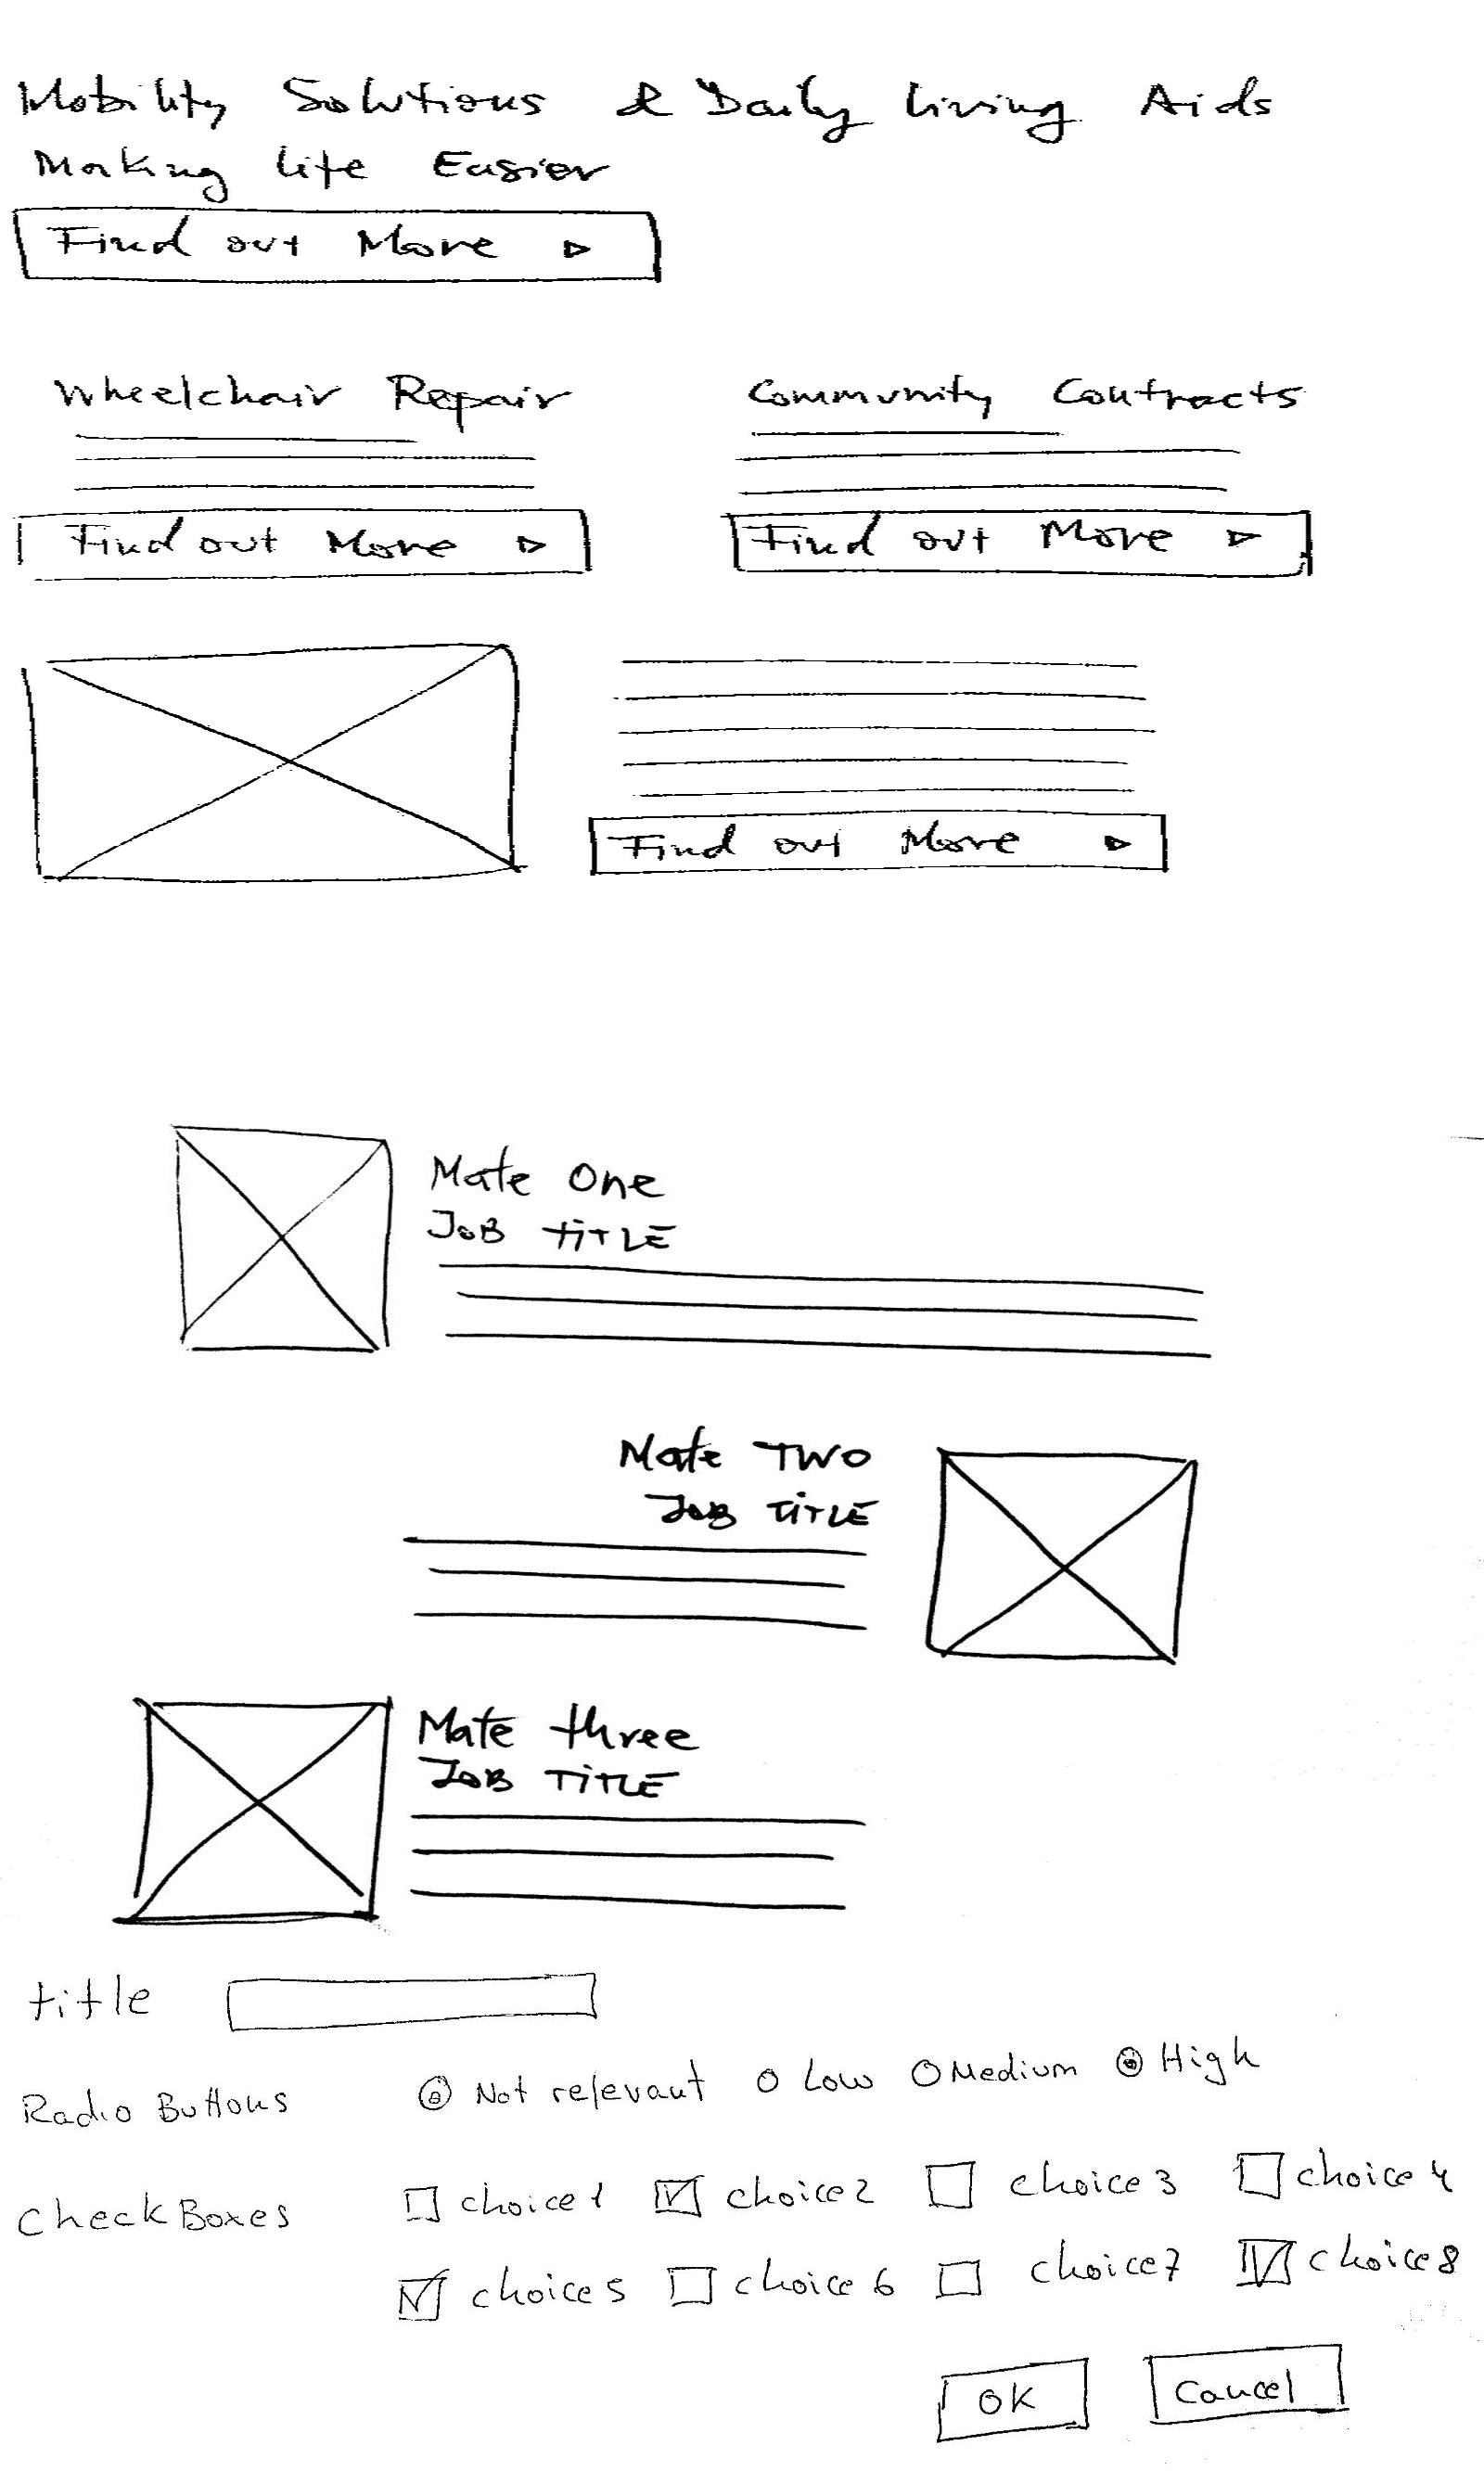 Mobility Solutions & Daily Living Aids
Making Life Easier
Find out More
Wheelchair Repair
Community Contracts
Find out More
Find out More
Find out More
Mate One
JOB TITLE
Mate Two
JOB TITLE
Mate three
JOB TITLE
title
Radio Buttons Not relevant Low Medium High
CheckBoxes choice1 choice2 choice3 choice4
choice5 choice6 choice7 choice8
OK Cancel